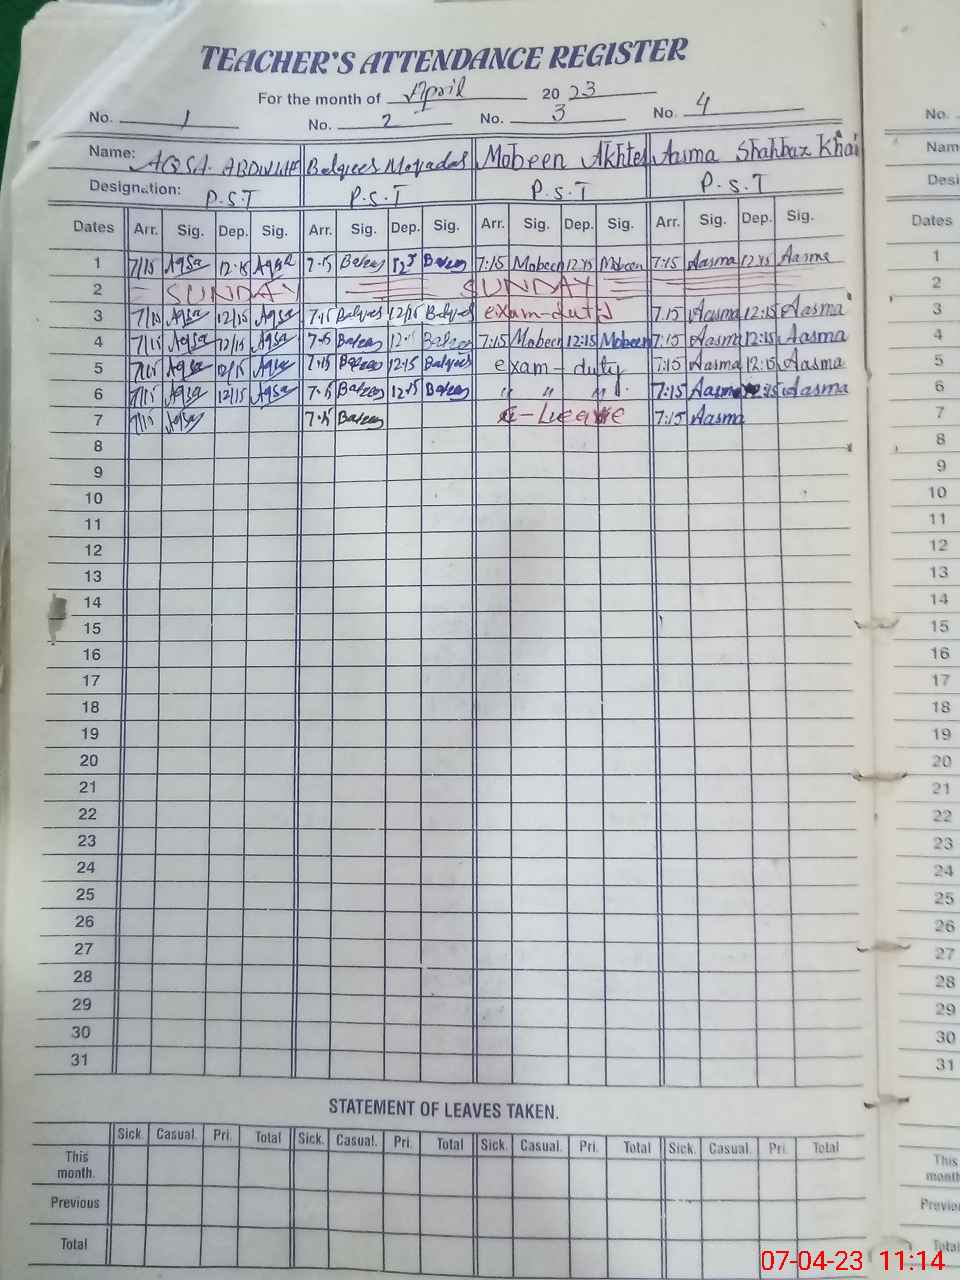 TEACHER'S ATTENDANCE REGISTER
For the month of April 2023
No. 1 No. 2 No. 3 No. 4 No.
Name: AQSA Balqees Mobeen Akhter Aasma Shahbaz Khan Nam
Designation: P.S.T P.S.T P.S.T P.S.T Desi
Dates Arr. Sig. Dep. Sig. Arr. Sig. Dep. Sig. Arr. Sig. Dep. Sig. Arr. Sig. Dep. Sig. Dates
1 7/15 Aqsa 12.15 Aqsa 7.15 Balqees 12.15 Balqees 7:15 Mobeen 12:15 Mobeen 7:15 Aasma 12:15 Aasma 1
2 SUNDAY SUNDAY 2
3 7/15 Aqsa 12/15 Aqsa 7.15 Balqees 12/15 Balqees exam-duty 7:15 Aasma 12:15 Aasma 3
4 7/15 Aqsa 12/15 Aqsa 7.15 Balqees 12.15 Balqees 7:15 Mobeen 12:15 Mobeen 7:15 Aasma 12:15 Aasma 4
5 7/15 Aqsa 12/15 Aqsa 7:15 Balqees 12:15 Balqees exam-duty 7:15 Aasma 12:15 Aasma 5
6 7/15 Aqsa 12/15 Aqsa 7.15 Balqees 12:15 Balqees " " " 7:15 Aasma 12:15 Aasma 6
7 7/15 Aqsa 7.15 Balqees 7:15 Aasma 7
8 8
9 9
10 10
11 11
12 12
13 13
14 14
15 15
16 16
17 17
18 18
19 19
20 20
21 21
22 22
23 23
24 24
25 25
26 26
27 27
28 28
29 29
30 30
31 31
STATEMENT OF LEAVES TAKEN.
Sick. Casual. Pri. Total Sick. Casual. Pri. Total Sick. Casual. Pri. Total Sick. Casual. Pri. Total
This month. This month
Previous Previou
Total Total
07-04-23 11:14